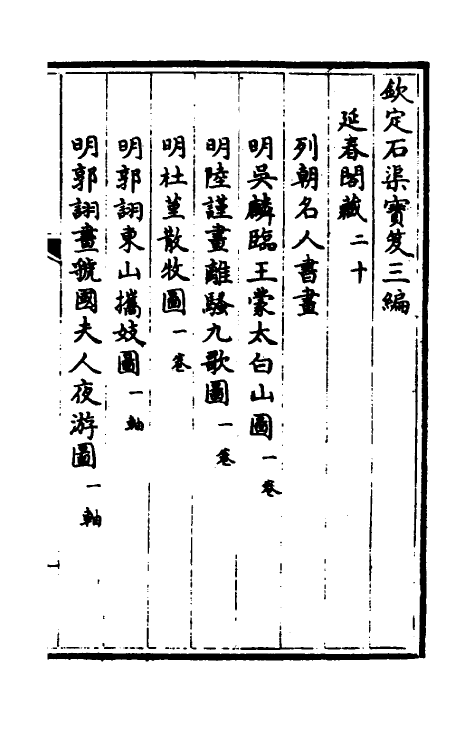 欽定石渠寳笈三編
延春閣藏二十
列朝名人書畫
明吳麟臨王蒙太白山圖一卷
明陸謹畫離騷九歌圖一卷
明杜堇散牧圖一卷
明郭詡東山攜妓圖一軸
明郭詡畫虢國夫人夜游圖一軸